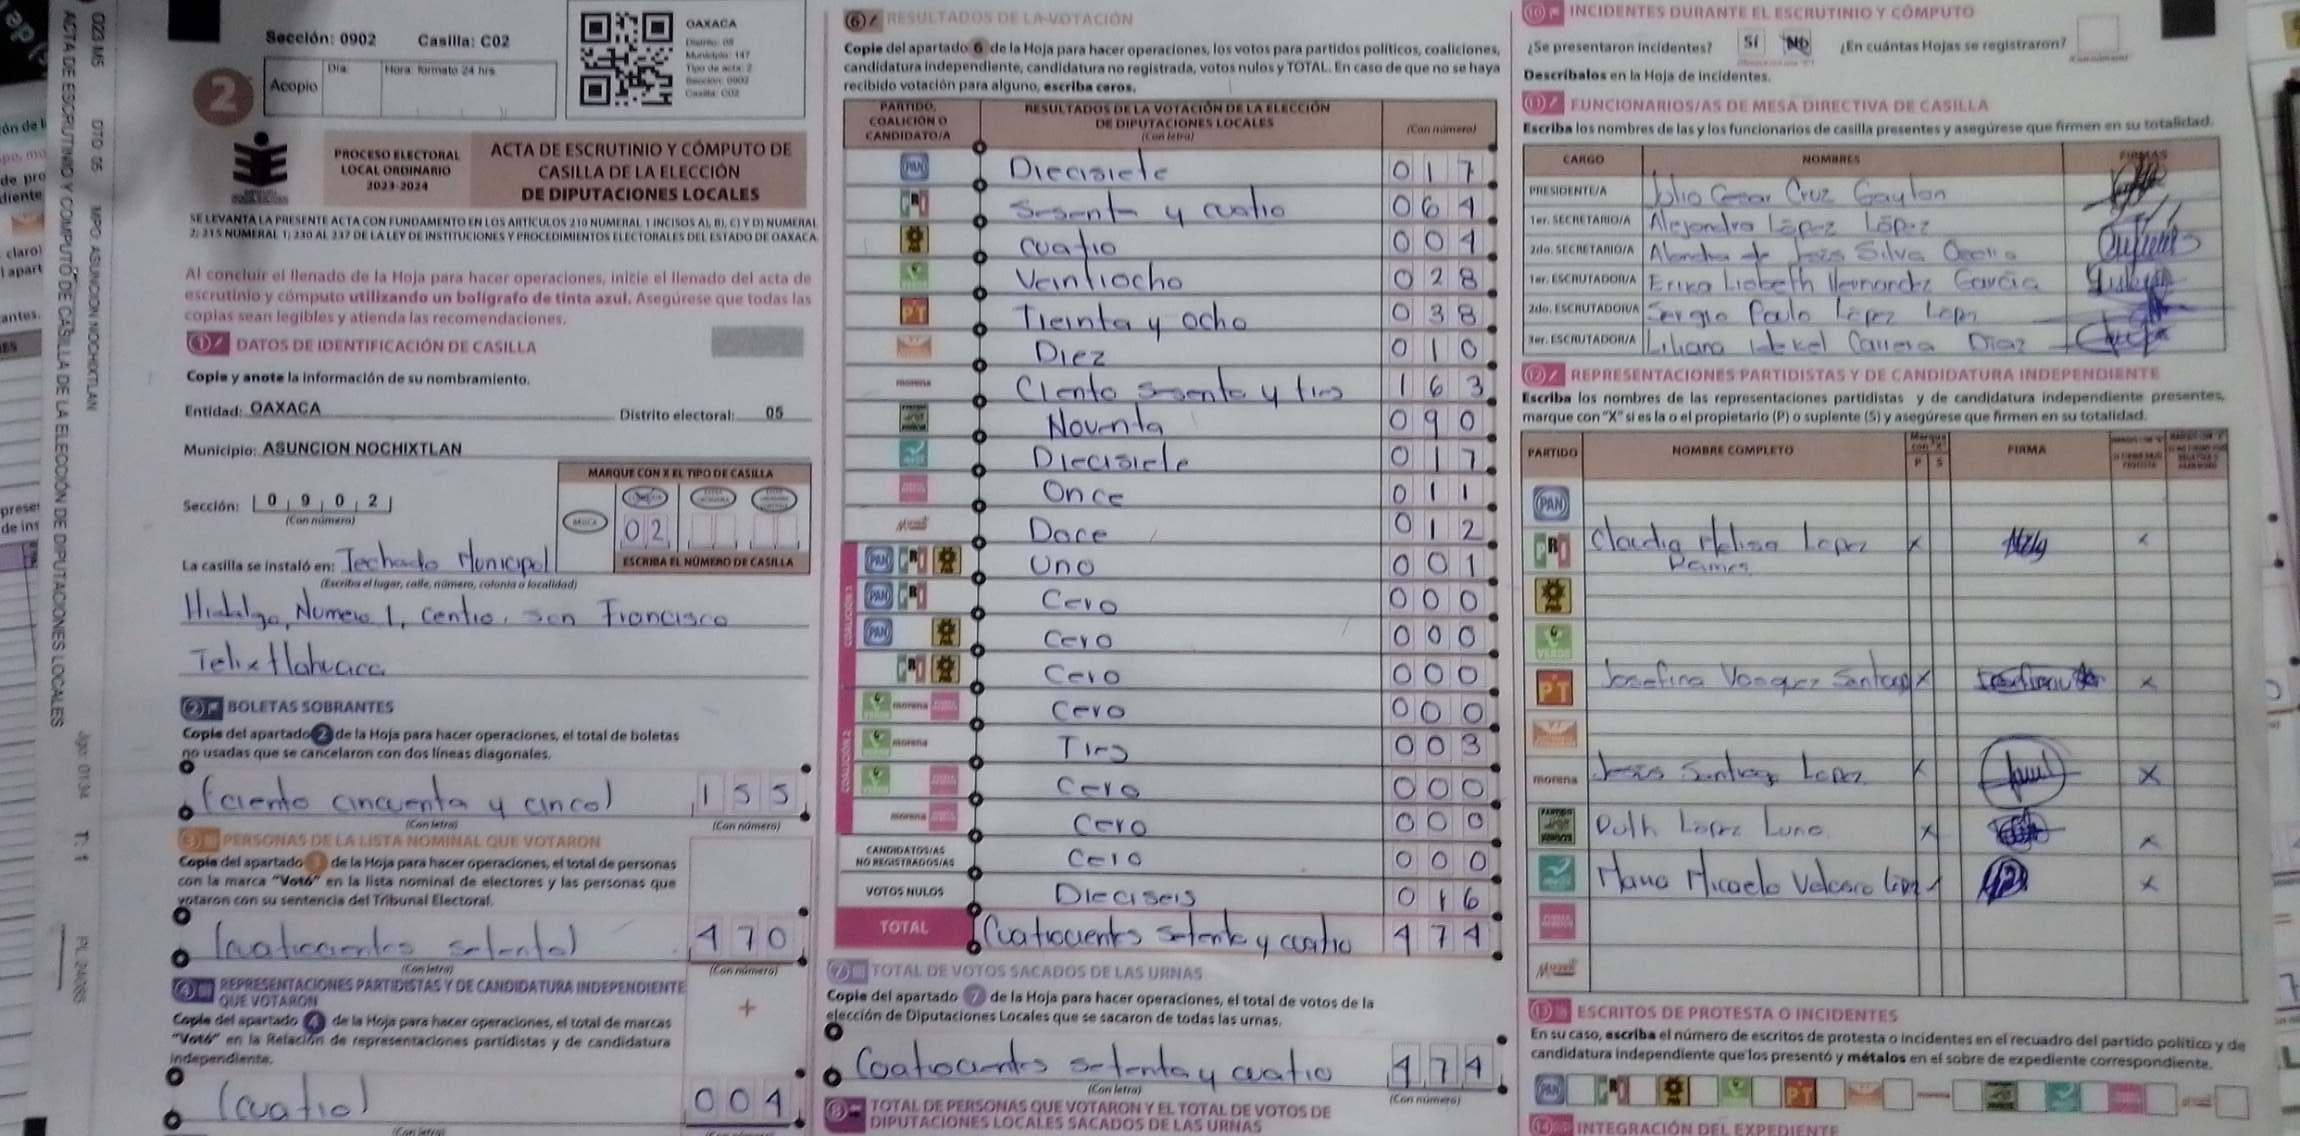 ACTA DE ESCRUTINIO Y CÓMPUTO DE CASILLA DE LA ELECCIÓN DE DIPUTACIONES LOCALES
023 M5 DTO: 05 MPO: ASUNCION NOCHIXTLAN
Sección: 0902 Casilla: C02
OAXACA
2 Acopio Día Hora: formato 24 hrs
PROCESO ELECTORAL LOCAL ORDINARIO 2023-2024
ACTA DE ESCRUTINIO Y CÓMPUTO DE
CASILLA DE LA ELECCIÓN
DE DIPUTACIONES LOCALES
SE LEVANTA LA PRESENTE ACTA CON FUNDAMENTO EN LOS ARTÍCULOS 210 NUMERAL 1 INCISOS A), B), C) Y D) NUMERAL
2; 215 NUMERAL 1; 230 AL 237 DE LA LEY DE INSTITUCIONES Y PROCEDIMIENTOS ELECTORALES DEL ESTADO DE OAXACA.
Al concluir el llenado de la Hoja para hacer operaciones, inicie el llenado del acta de
escrutinio y cómputo utilizando un bolígrafo de tinta azul. Asegúrese que todas las
copias sean legibles y atienda las recomendaciones.
1 DATOS DE IDENTIFICACIÓN DE CASILLA
Copie y anote la información de su nombramiento.
Entidad: OAXACA Distrito electoral: 05
Municipio: ASUNCION NOCHIXTLAN
MARQUE CON X EL TIPO DE CASILLA
Sección: 0 9 0 2
(Con número)
02
ESCRIBA EL NÚMERO DE CASILLA
La casilla se instaló en: Techado Municipal
(Escriba el lugar, calle, número, colonia o localidad)
Hidalgo, Numero 1, Centro, San Francisco
Telixtlahuaca
2 BOLETAS SOBRANTES
Copie del apartado 2 de la Hoja para hacer operaciones, el total de boletas
no usadas que se cancelaron con dos líneas diagonales.
(ciento cincuenta y cinco) 155
(Con letra) (Con número)
3 PERSONAS DE LA LISTA NOMINAL QUE VOTARON
Copie del apartado 3 de la Hoja para hacer operaciones, el total de personas
con la marca "Votó" en la lista nominal de electores y las personas que
votaron con su sentencia del Tribunal Electoral.
(cuatrocientos setenta) 470
(Con letra) (Con número)
4 REPRESENTACIONES PARTIDISTAS Y DE CANDIDATURA INDEPENDIENTE
QUE VOTARON
Copie del apartado 4 de la Hoja para hacer operaciones, el total de marcas
"Votó" en la Relación de representaciones partidistas y de candidatura
independiente.
+
(cuatro) 004
(Con letra)
6 RESULTADOS DE LA VOTACIÓN
Copie del apartado 6 de la Hoja para hacer operaciones, los votos para partidos políticos, coaliciones,
candidatura independiente, candidatura no registrada, votos nulos y TOTAL. En caso de que no se haya
recibido votación para alguno, escriba ceros.
PARTIDO, COALICIÓN O CANDIDATO/A
RESULTADOS DE LA VOTACIÓN DE LA ELECCIÓN DE DIPUTACIONES LOCALES
(Con letra) (Con número)
PAN Diecisiete 017
PRI Sesenta y cuatro 064
PRD cuatro 004
VERDE Veintiocho 028
PT Treinta y ocho 038
Diez 010
morena Ciento sesenta y tres 163
Noventa 090
Diecisiete 017
Once 011
Mujer Doce 012
COALICIÓN 1
PAN PRI PRD Uno 001
PAN PRI Cero 000
PAN PRD Cero 000
PRI PRD Cero 000
COALICIÓN 2
VERDE morena Cero 000
VERDE morena Tres 003
VERDE Cero 000
morena Cero 000
CANDIDATOS/AS NO REGISTRADOS/AS Cero 000
VOTOS NULOS Dieciseis 016
TOTAL Cuatrocientos setenta y cuatro 474
7 TOTAL DE VOTOS SACADOS DE LAS URNAS
Copie del apartado 7 de la Hoja para hacer operaciones, el total de votos de la
elección de Diputaciones Locales que se sacaron de todas las urnas.
Cuatrocientos setenta y cuatro 474
(Con letra) (Con número)
8 TOTAL DE PERSONAS QUE VOTARON Y EL TOTAL DE VOTOS DE
DIPUTACIONES LOCALES SACADOS DE LAS URNAS
10 INCIDENTES DURANTE EL ESCRUTINIO Y CÓMPUTO
¿Se presentaron incidentes? Sí NO ¿En cuántas Hojas se registraron?
Descríbalos en la Hoja de incidentes.
11 FUNCIONARIOS/AS DE MESA DIRECTIVA DE CASILLA
Escriba los nombres de las y los funcionarios de casilla presentes y asegúrese que firmen en su totalidad.
CARGO NOMBRES FIRMAS
PRESIDENTE/A Julio Cesar Cruz Gaytan
1er. SECRETARIO/A Alejandro López López
2do. SECRETARIO/A Silva
1er. ESCRUTADOR/A Erika Lisbeth Hernandez Garcia
2do. ESCRUTADOR/A Sergio Paulo López López
3er. ESCRUTADOR/A Liliana Carrera Diaz
12 REPRESENTACIONES PARTIDISTAS Y DE CANDIDATURA INDEPENDIENTE
Escriba los nombres de las representaciones partidistas y de candidatura independiente presentes,
marque con "X" si es la o el propietario (P) o suplente (S) y asegúrese que firmen en su totalidad.
PARTIDO NOMBRE COMPLETO Marque con "X" P S FIRMA
PAN
PRI Claudia Melisa Lopez X X
VERDE
PT Josefina Vasquez Santiago X X
morena Jesús Santiago Lopez X X
Ruth López Luna X X
Maria Micaela Velasco López X
13 ESCRITOS DE PROTESTA O INCIDENTES
En su caso, escriba el número de escritos de protesta o incidentes en el recuadro del partido político y de
candidatura independiente que los presentó y métalos en el sobre de expediente correspondiente.
14 INTEGRACIÓN DEL EXPEDIENTE